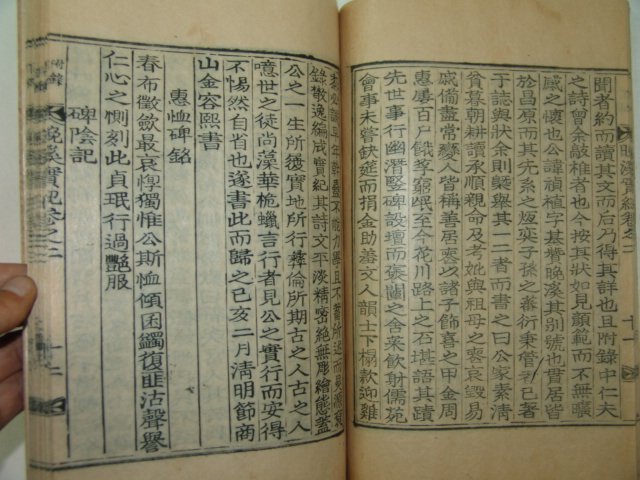 晩溪實紀卷之二
十一
聞者約而讀其文而后乃得其詳也且附錄中仁夫
之詩曾余敲稚者也今按其狀如見顔範而不無曠
感之懷也公諱禎植字基賛晚溪其別號也貫居皆
於昌原而其先系之燠奕子孫之蕃衍秉管
于誌與狀余則駢舉其一二者而書之曰公家素清
貧暮朝耕讀承順親命及考妣與祖母之喪哀毀易
戚備盡常變人皆稱善居喪以諸子飾喜之甲金周
惠屢百戶餓莩窮氓至今花川路上之石堪語其蹟
先世事行幽潛竪碑設壇而褒闡之舍菜飲射儒苑
會事未嘗缺筵而捐金助善文人韻士下榻款迎雖
公之一生所履實地所行彛倫所期古之人古人之
噫世之徒尚藻華梔蠟言行者見公之實行而安得
不惕然自省也遂書此而歸之己亥二月清明節商
山金容熙書
惠恤碑銘
春布徵斂最哀惸獨惟公斯恤傾囷蠲復匪沽聲譽
仁心之惻刻此貞珉行過艷服
碑陰記
附錄
晚溪實紀卷之二
十二